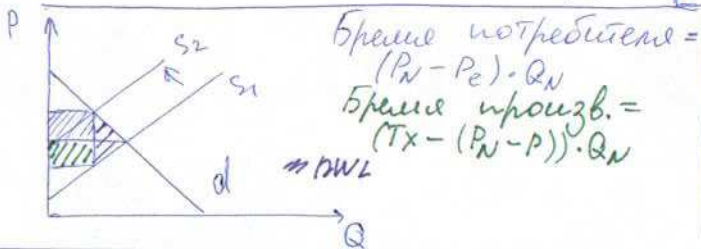 P
S2
S1
d
Q
= DWL
Бремя потребителя =
(PN - Pe) · QN
Бремя произв. =
(Tx - (PN - P)) · QN